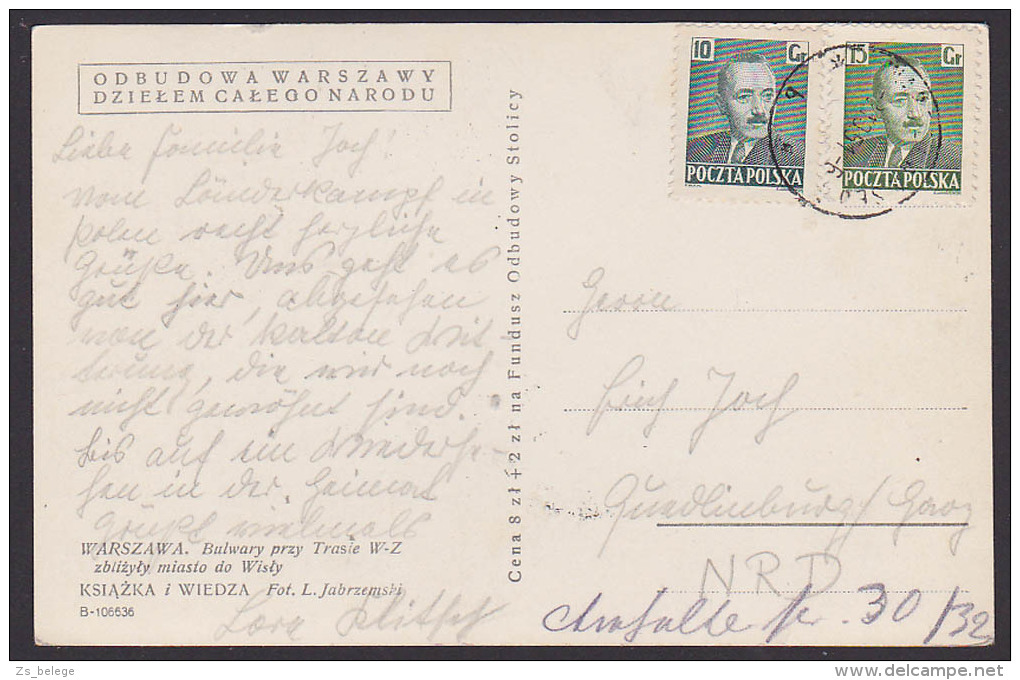 ODBUDOWA WARSZAWY
DZIEŁEM CAŁEGO NARODU
Liebe Familie Joch!
Vom Länderkampf in
Polen recht herzliche
Grüße. Uns geht es
gut hier, abgesehen
von der kalten Wit-
terung, die wir noch
nicht gewöhnt sind.
Bis auf ein Wiederse-
hen in der Heimat
grüßt vielmals
WARSZAWA. Bulwary przy Trasie W-Z
zbliżyły miasto do Wisły
KSIĄŻKA i WIEDZA Fot. L. Jabrzemski
B-106636
Lore
Cena 8 zł + 2 zł na Fundusz Odbudowy Stolicy
10 Gr
POCZTA POLSKA
15 Gr
POCZTA POLSKA
Herrn
Erich Joch
Quedlinburg/Harz
NRD
30/32
Zs_belege
delcampe.net